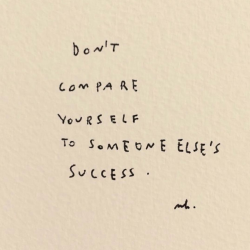 DON'T
COMPARE
YOURSELF
TO SOMEONE ELSE'S
SUCCESS.